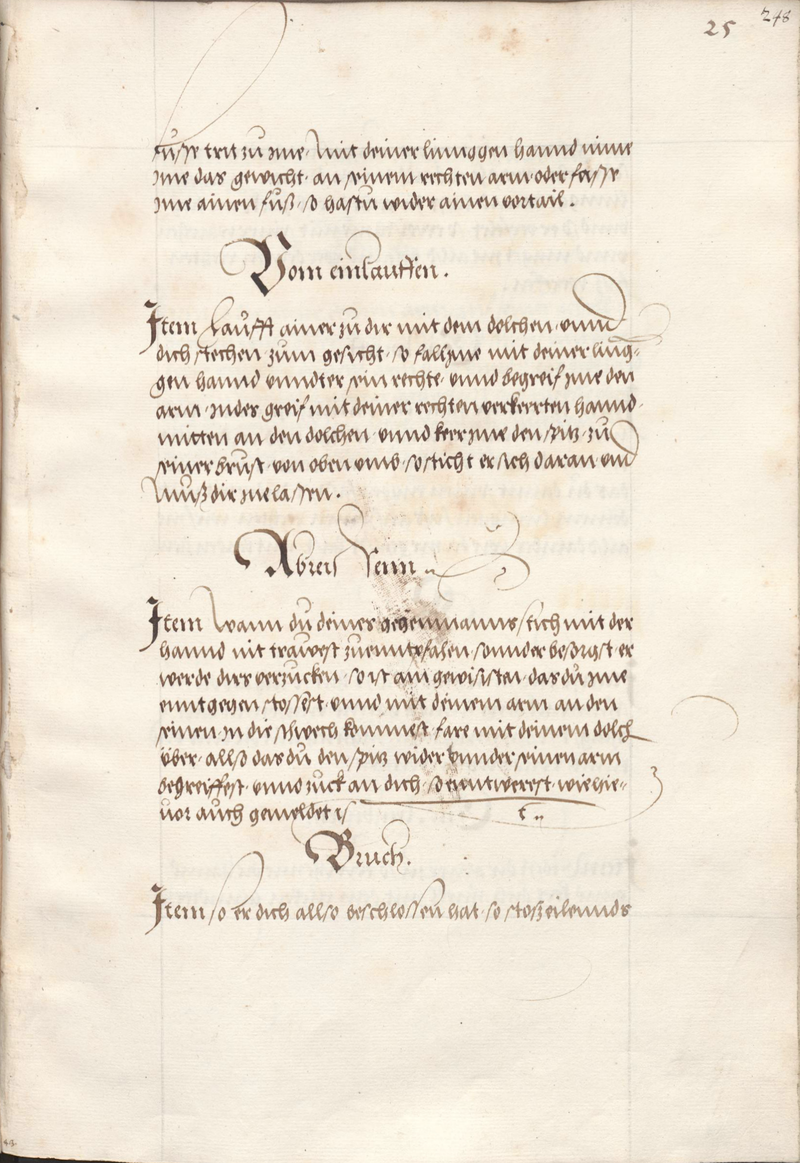 25 248
fusse trit zu jme, Mit deiner linnggen hannd nime
jme das gewicht, an seinem rechten arm, oder fasse
jme ainen fuß, so hastu wider ainen vortail.
Vom einlauffen.
Item Laufft ainer zu dir mit dem dolchen, vnnd
dich stechen zum gesicht, so fall jme mit deiner ling=
gen hannd vnndter sein rechte, vnnd begreif jme den
arm, Indes greif mit deiner rechten verkerrten hannd,
mitten an den dolchen, vnnd kerr jme den spitz, zu
seiner brust, von oben vmb, so sticht er sich daran, vnd
Muß dir jne lassen.
Abreissenn
Item Wann du deines gegenmanns stich mit der
hannd nit trawest zuenntpfahen, sonnder besorgst, er
werde dirs verzucken, so ist am gewisisten, das du jme
enntgegen stossest, vnnd mit deinem arm an den
seinen, in die schwech kommest, fare mit deinem dolch
über, allso das du den spitz wider vnnder seinen arm
begreiffest, vnnd zuck an dich, so enntwerest, wie hie=
uor auch gemeldet ist
Bruch.
Item so er dich allso beschlossen hat, so stosz eilennds